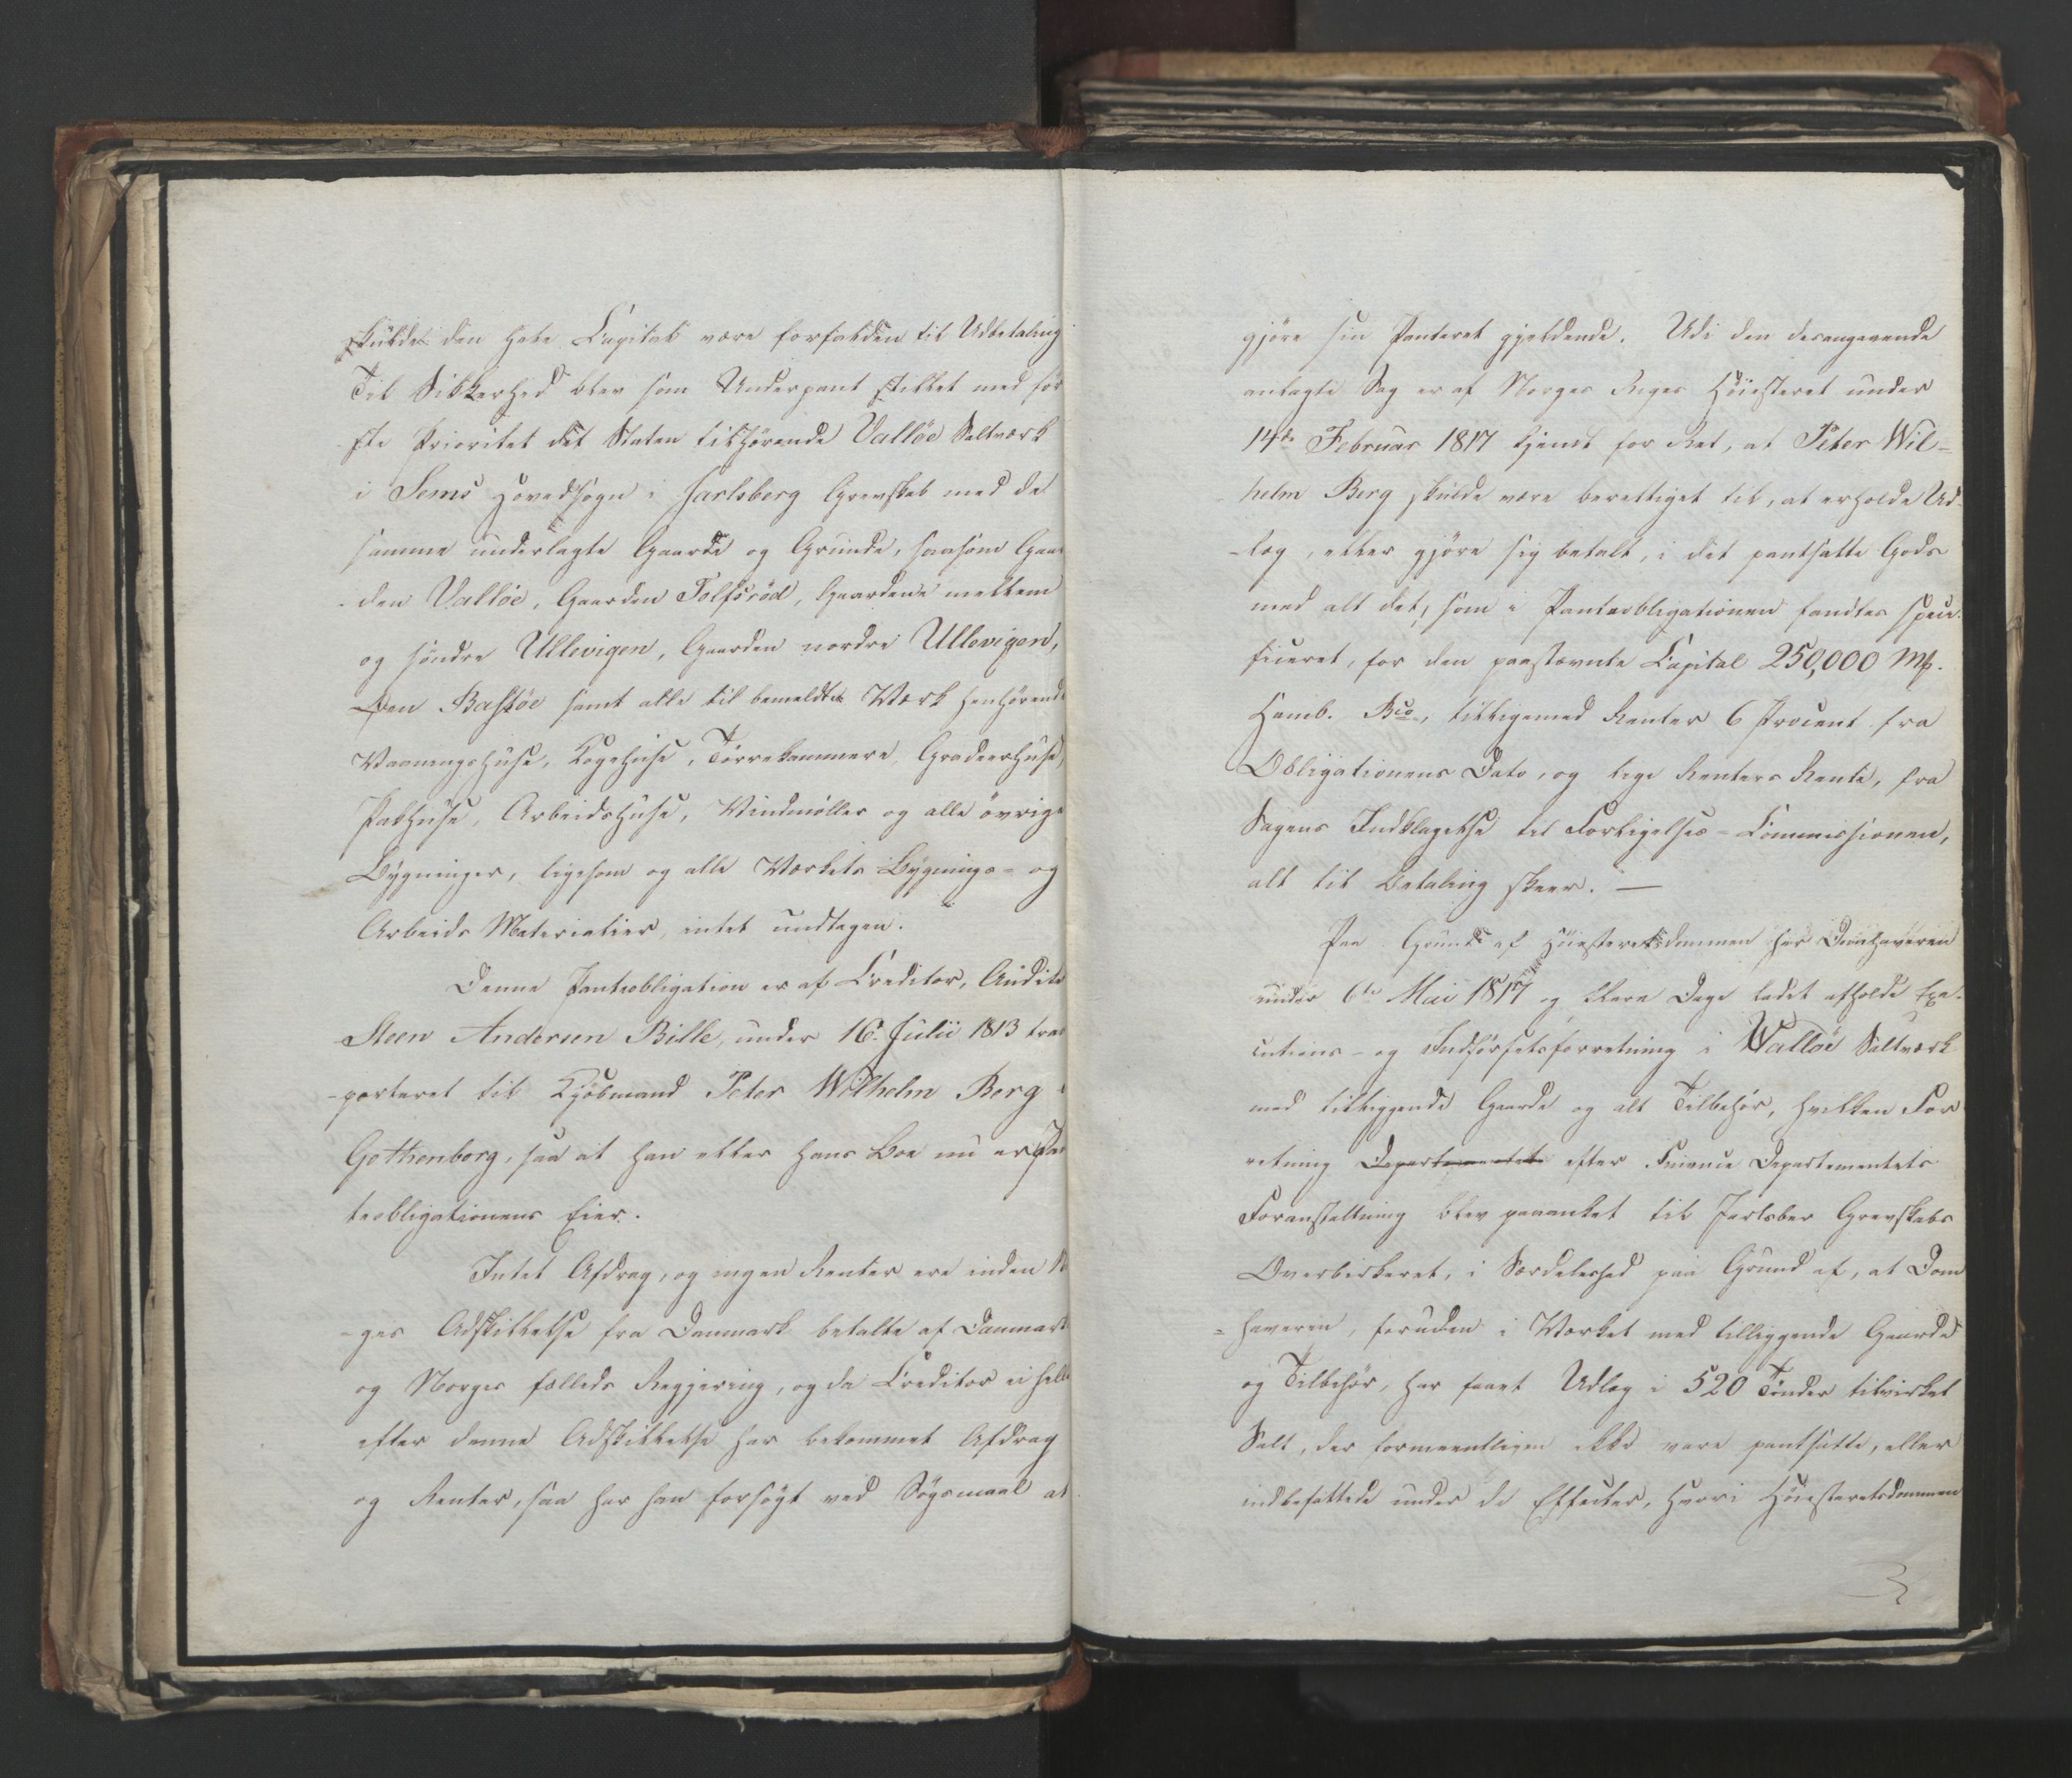 skulde den hele Capital være forfalden til Udbetaling
Til Sikkerhed blev som Underpant stillet med før
ste Prioritet det Staten tilhørende Valløe Saltværk
i Sems Hovedsogn i Jarlsberg Grevskab med de
samme underlagte Gaarde og Grunde, saasom Gaar
-den Valløe, Gaarden Tolfsröd, Gaardene mellem
og søndre Ullevigen, Gaarden nordre Ullevigen,
Øen Bastöe samt alle til bemeldte Værk henhørende
Vaaningshuse, Kogehuse, Tørrekammere, Gradeerhuse,
Pakhuse, Arbeidshuse, Vindmøller og alle øvrige
Bygninger, ligesom og alle Værkets Bygnings- og
Arbeids Materialier, intet undtagen.
Denne Panteobligation er af Creditor, Audite
Steen Andersen Bille, under 16. Julii 1813 trans
-porteret til Kjøbmand Peter Wilhelm Berg i
Gothenborg, saa at han eller hans Boe nu er Pan
teobligationens Eier.
Intet Afdrag, og ingen Renter ere inden No
-ges Adskillelse fra Danmark betalte af Danmark
og Norges fælleds Regjering, og da Creditor ei hell
efter denne Adskillelse har bekommet Afdrag
og Renter, saa har han forsøgt ved Søgsmaal at
gjøre sin Panteret gjeldende. Udi den desangaaende
anlagte Sag er af Norges Riges Høiesteret under
14de Februar 1817 kjendt for Ret, at Peter Wil-
helm Berg skulde være berettiget til, at erholde Ud-
-læg, eller gjøre sig betalt, i det pantsatte Gods
med alt det, som i Panteobligationen fandtes speci-
ficeret, for den paastævnte Capital 250,000 Mk.
Hamb. Bco, tilligemed Renter 6 Procent fra
Obligationens Dato, og lige Renters Rente, fra
Sagens Indklagelse til Forligelses-Commissionen,
alt til Betaling skeer. —
Paa Grund af Høiesteretsdommen har Domhaveren
under 6te Mai 1817 og flere Dage ladet afholde Exe-
cutions- og Indførselsforretning i Walløe Saltværk
med tilliggende Gaarde og alt Tilbehør, hvilken For
retning Departementet efter Finance Departementets
Foranstaltning blev paaanket til Jarlsber Grevskabs
Overbirkeret, i Særdeleshed paa Grund af, at Dom
-haveren, foruden i Værket med tilliggende Gaarde
og Tilbehør, har faaet Udlæg i 520 Tønder tilvirket
Salt, der formeentligen ikke vare pantsatte, eller
indbefattede under de Effecter, hvori Høiesteretsdommen